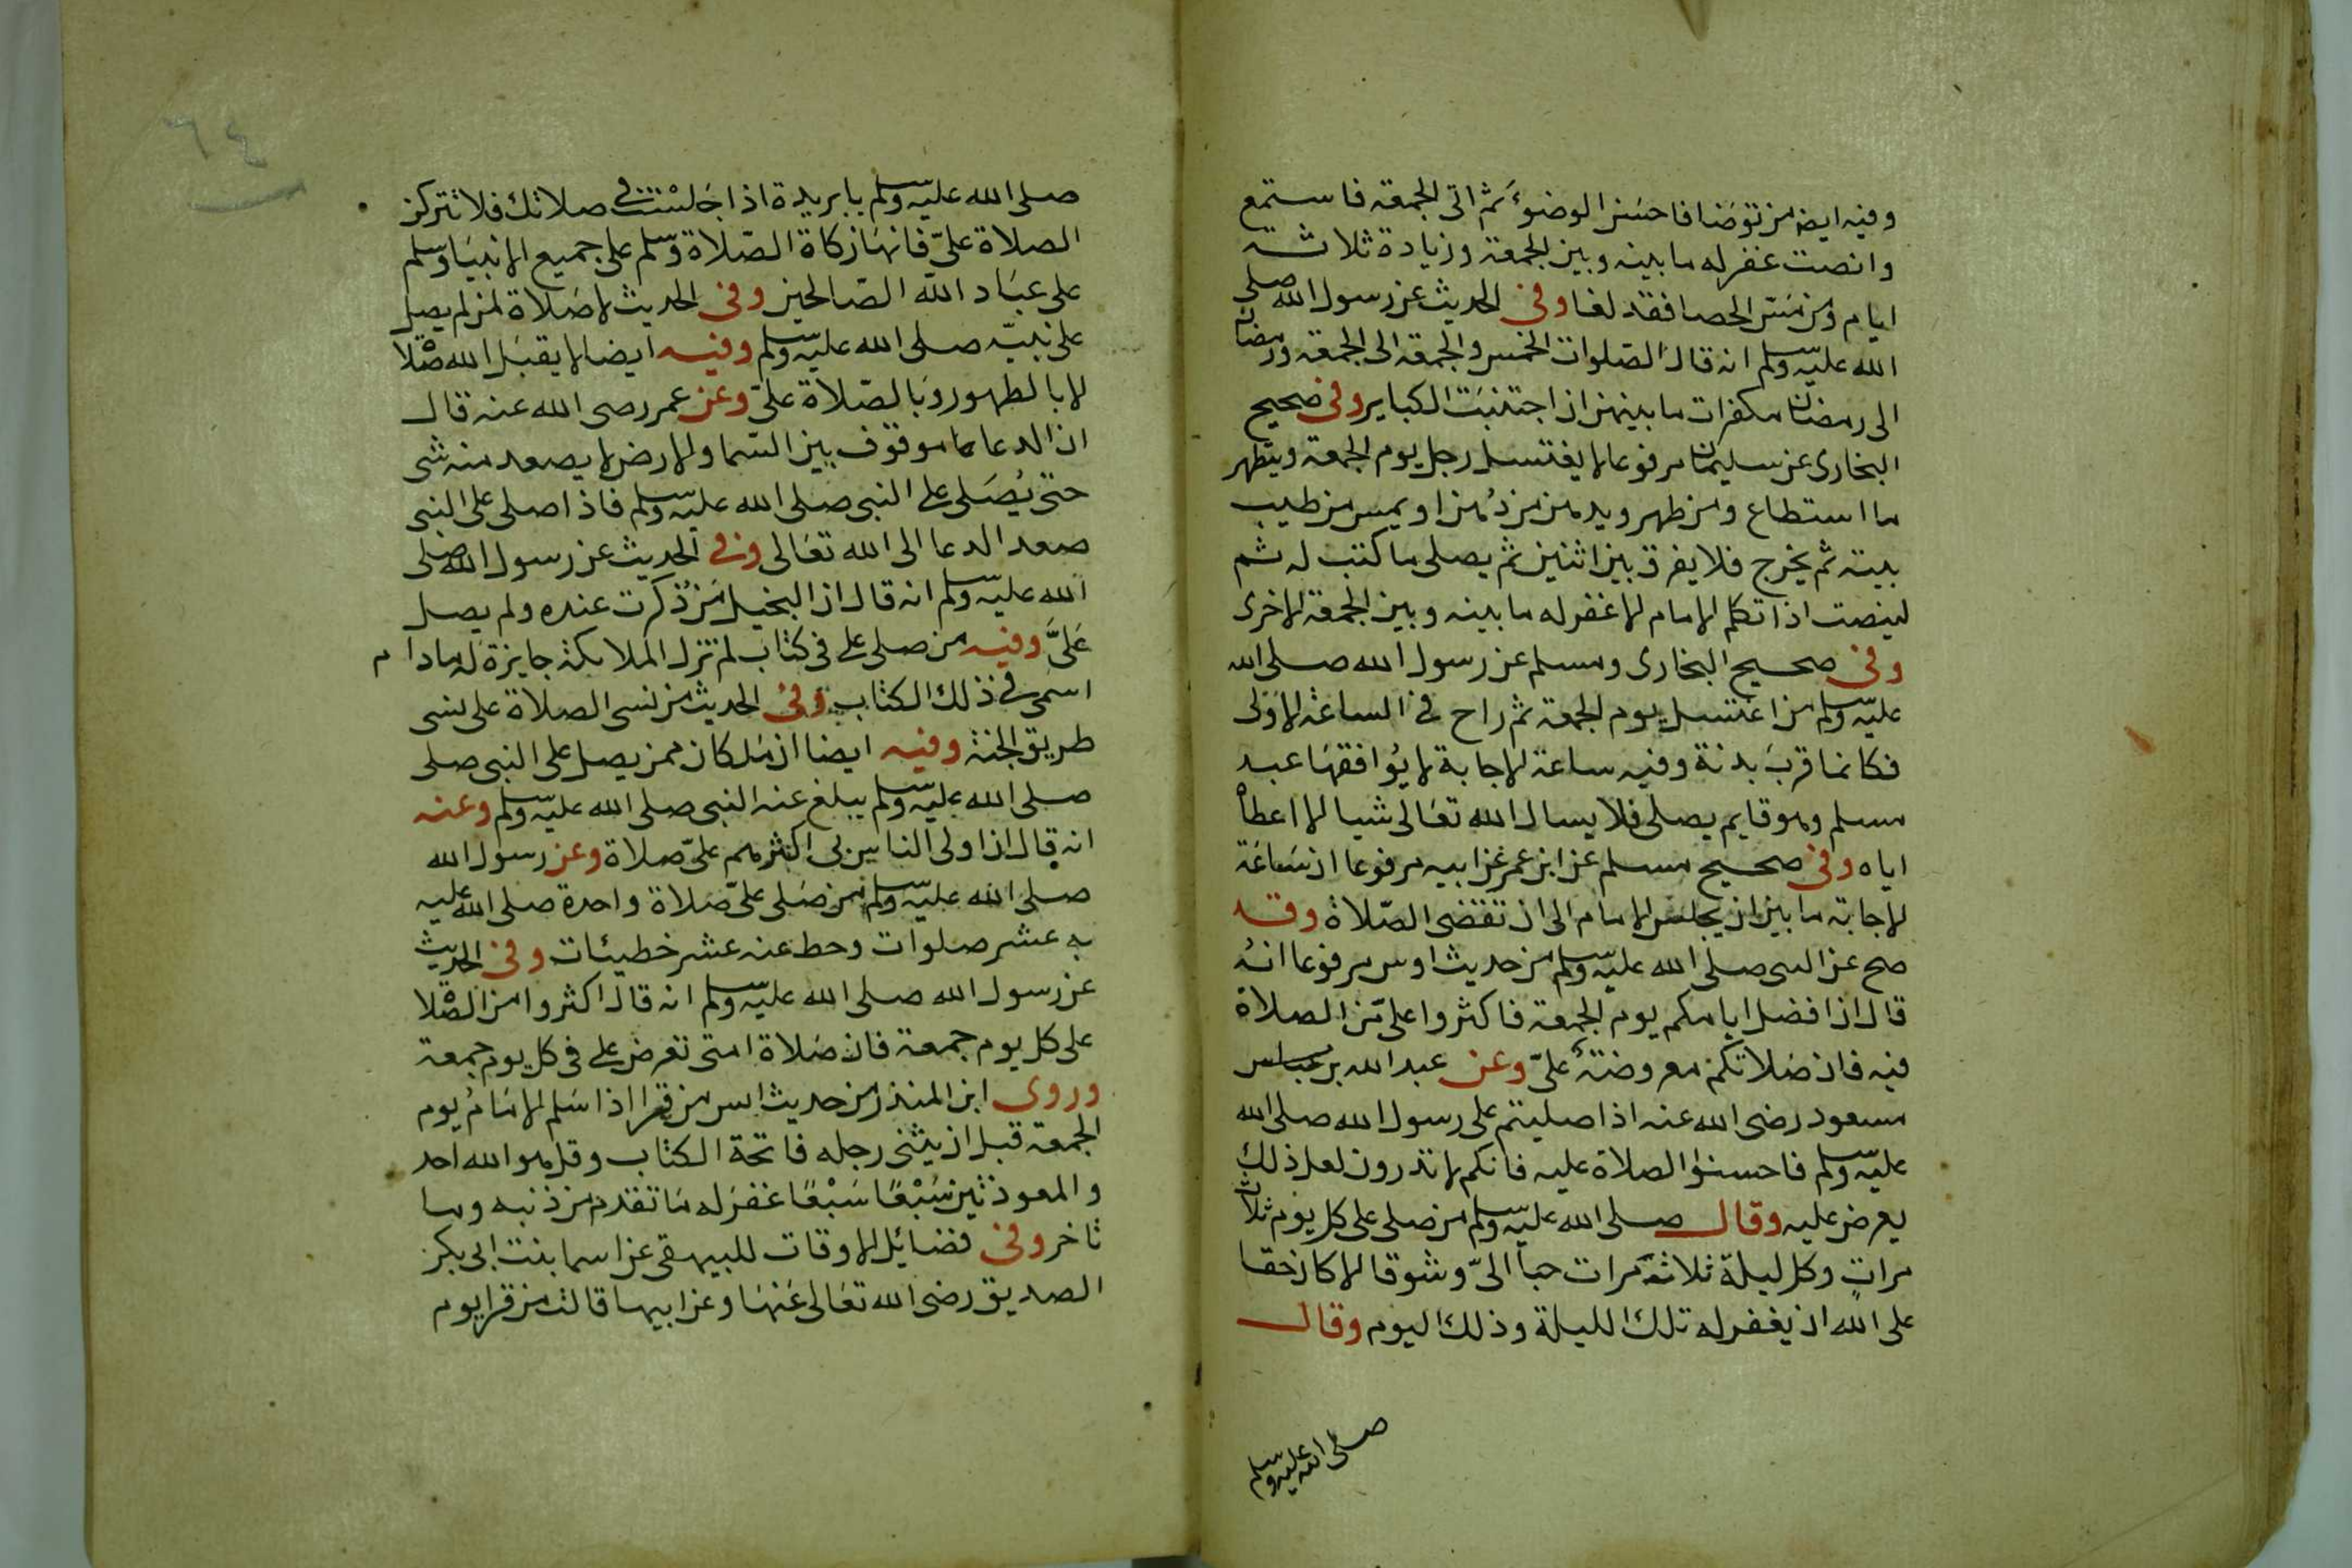 وفيه ايضا من توضا فاحسن الوضوء ثم اتى الجمعة فاستمع
وانصت غفر له ما بينه وبين الجمعة وزيادة ثلاثة
ايام ومن مس الحصا فقد لغا وفي الحديث عن رسول الله صلى
الله عليه وسلم انه قال الصلوات الخمس والجمعة الى الجمعة ورمضان
الى رمضان مكفرات ما بينهن اذا اجتنبت الكباير وفي صحيح
البخارى عن سليمان مرفوعا لا يغتسل رجل يوم الجمعة ويتطهر
ما استطاع من طهر ويدهن من دُهن او يمس من طيب
بيته ثم يخرج فلا يفرق بين اثنين ثم يصلى ما كتب له ثم
لينصت اذا تكلم الامام الا غفر له ما بينه وبين الجمعة الاخرى
وفي صحيح البخارى ومسلم عن رسول الله صلى الله
عليه وسلم من اغتسل يوم الجمعة ثم راح في الساعة الاوَلى
فكانما قربَ بدنة وفيه ساعة الاجابة لا يُوافقهَا عبد
مسلم وهو قايم يصلى فلا يسال الله تعَالى شيا الا اعطاهُ
اياه وفي صحيح مسلم عن ابن عمر عن ابيه مرفوعا ان سَاعَة
الاجابة ما بين ان يجلسَ الامام الى ان تقضى الصّلاة وقد
صح عن النبى صلى الله عليه وسلم من حديث اوس مرفوعا انهُ
قال ان افضل ايامكم يوم الجمعة فاكثروا علىّ من الصلاة
فيه فان صَلاتكم معروضةٌ علىّ وعن عبد الله بن عباس
مسعود رضى الله عنه اذا صليتم على رسول الله صلى الله
عليه وسلم فاحسنوا الصلاة عليه فانكم لا تدرون لعل ذلك
يعرض عليه وقال صلى الله عليه وسلم من صلى على كل يوم ثلاث
مراتٍ وكل ليلة ثلاثة مرات حباً الىّ وشوقا الا كان حقا
على الله ان يغفر له تلك الليلة وذلك اليوم وقال
صلى الله عليه وسلم
٦٤
صلى الله عليه وسلم يا بريدة اذا جَلسْت في صلاتك فلا تتركن
الصلاة علىّ فانهَا زكاة الصّلاة وسلم على جميع الانبيَا وسلم
على عبَاد الله الصَالحين وفي الحديث لا صَلاة لمن لم يصل
على نبيّه صلى الله عليه وسلم وفيه ايضا لا يقبَل الله صَلاة
الا بالطهور وبَالصّلاة علىّ وعن عمر رضى الله عنه قال
ان الدعا موقوف بين السّما والارض لا يصعد منه شى
حتى يُصَلى على النبى صلى الله عليه وسلم فاذا صلى على النبى
صعد الدعا الى الله تعَالى وفي الحديث عن رسول الله صلى
الله عليه وسلم انه قال ان البخيل مَن ذُكرت عنده ولم يصل
عَلىَّ وفيه من صلى على فى كتاب لم تزل الملايكة جايزة له ما دام
اسمى في ذلك الكتاب وفي الحديث من نسى الصلاة على نسى
طريق الجنة وفيه ايضا ان مَلكا من يصل على النبى صلى
صلى الله عليه وسلم يبلغ عنه النبى صلى الله عليه وسلم وعنه
انه قال ان اولى الناس بى اكثرهم علىّ صلاة وعن رسول الله
صلى الله عليه وسلم من صَلى علىّ صَلاة واحدة صلى الله عليه
به عشر صلوات وحط عنه عشر خطيئات وفي الحديث
عن رسول الله صلى الله عليه وسلم انه قال اكثروا من الصَّلاة
على كل يوم جمعة فان صَلاة امتى تعرض على فى كل يوم جمعة
وروى ابن المنذر من حديث انس من قرا اذا سَلم الامَامُ يوم
الجمعة قبل ان يثنى رجله فاتحة الكتاب وقل هو الله احد
والمعوذتين سَبْعًا سَبْعًا غفرَ له مَا تقدم من ذنبه وما
تاخر وفي فضائل الاوقات للبيهقى عن اسما بنت ابى بكر
الصديق رضى الله تعَالى عَنهَا وعن ابيها قالت من قرا يوم